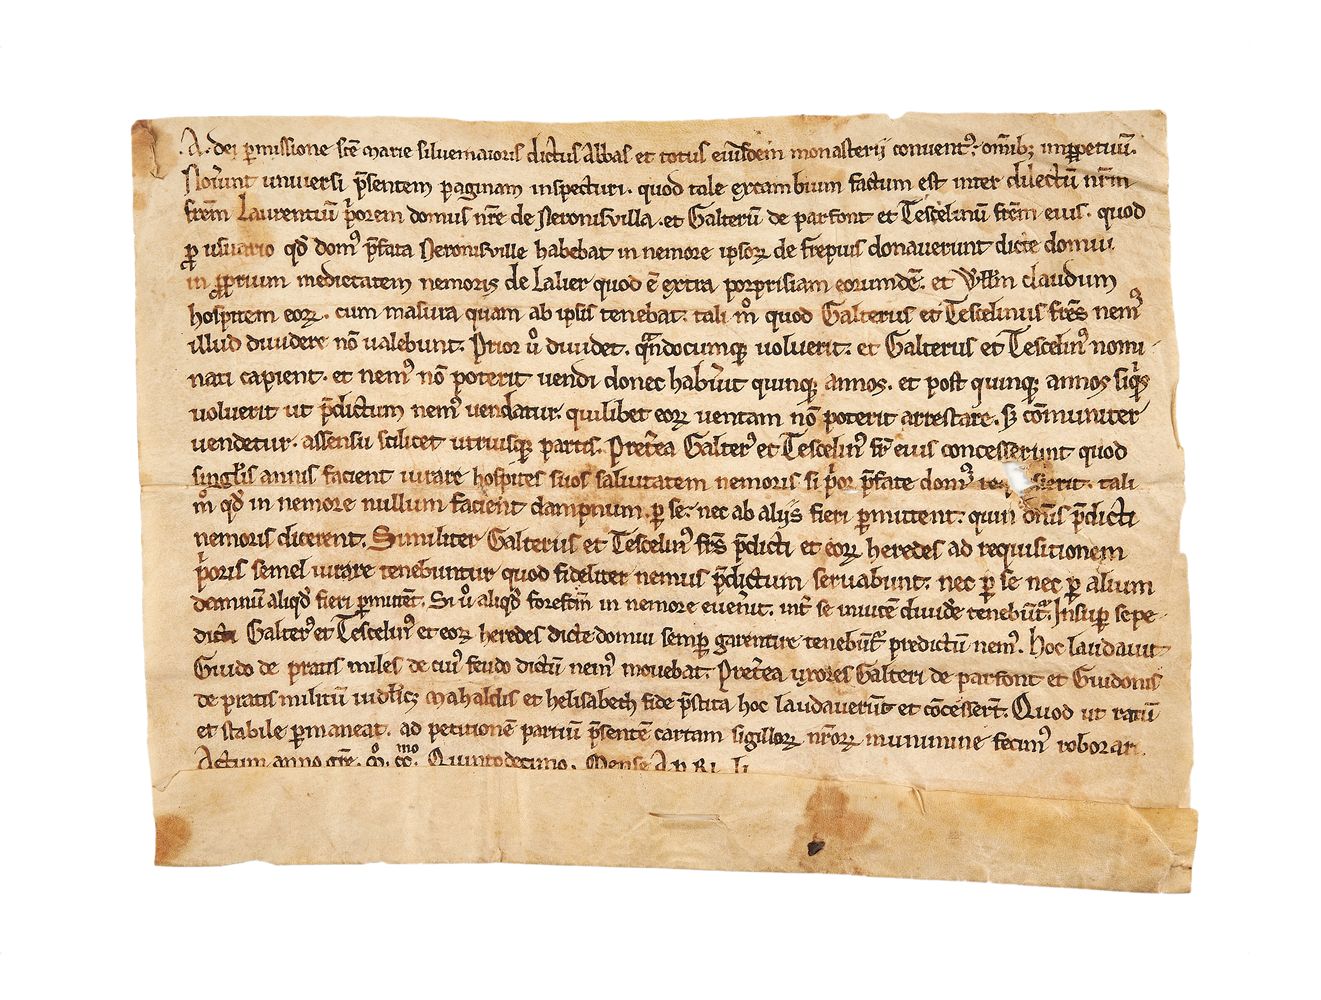 .A. dei p̄missione sc̄e marie siluemaioris dictus abbas et totus eiusdem monasterij conuent᷒. om̄ib; īn ꝑpetuū.
Nou̾int uniuersi p̄sentem paginam inspecturi. quod tale excambium factum est inter dilectū nr̄m
fr̄em Laurentiū p̾orem domus nr̄e de Neronisuilla. et Galterū de parfont et Tescelinū fr̄em eius. quod
ꝓ usuario qd̾ dom᷒ p̄fata Neronisuille habebat in nemore ipsoꝝ de frepius donauerunt dicte domui
in ꝓprium medietatem nemoris de Lalier quod ē extra porprisiam eorumdē. et Will̄m claudum
hospitem eoꝝ. cum masura quam ab ipsis tenebat. tali m̊ quod Galterus et Tescelinus fr̄es nem᷒
illud diuidere nō ualebunt. Prior u̾ diuidet. qn̄documqꝫ uoluerit. et Galterus et Tescelin᷒ nomi-
nati capient. et nem᷒ nō poterit uendi donec habu̾it quinqꝫ annos. et post quinqꝫ annos siq̾s
uoluerit ut p̄dictum nem᷒ uendatur. quilibet eoꝝ uentam nō poterit arrestare. Sꝫ cōmuniter
uendetur. assensu scilicet utriusqꝫ partis. Pret̾ea Galter᷒ et Tescelin᷒ fr̄ ei᷒us concesserunt quod
singl̾is annis facient iurare hospites suos saluitatem nemoris si p̾or p̄fate dom᷒ tali
m̊ qd̾ in nemore nullum facient dampnum. ꝑ se. nec ab alijs fieri ꝑmittent. quin dn̄is p̄dicti
nemoris dicerent. Similiter Galterus et Tescelin᷒ fr̄s p̄dicti et eoꝝ heredes ad requisitionem
p̾oris semel iurare tenebuntur quod fideliter nemus p̄dictum seruabunt. nec ꝑ se nec ꝑ alium
damnū aliqd̾ fieri ꝑmittēt. Si u̾ aliqd̾ forefc̄m in nemore euen̾it. int̾ se inuicē diuide̾ tenebūt᷑. Insuꝑ sepe-
dicti Galter᷒ et Tescelin᷒ et eoꝝ heredes dicte domui semꝑ garentire tenebūt᷑ predictū nem᷒. hoc laudauit
Guido de pratis miles de cui᷒ feudo dictū nem᷒ mouebat. Pret̾ea uxores Galteri de parfont et Guidonis
de pratis militū uidl̾icꝫ Mahaldis et helisabeth fide p̄stita hoc laudauerūt et cōcesser̄t. Quod ut ratū
et stabile ꝑmaneat. ad petitionē partiū p̄sentē cartam sigilloꝝ nr̄oꝝ munimine fecim᷒ roborari.
Actum anno gr̄e. m̊. cc̊. mo Quintodecimo. Mense Aprili